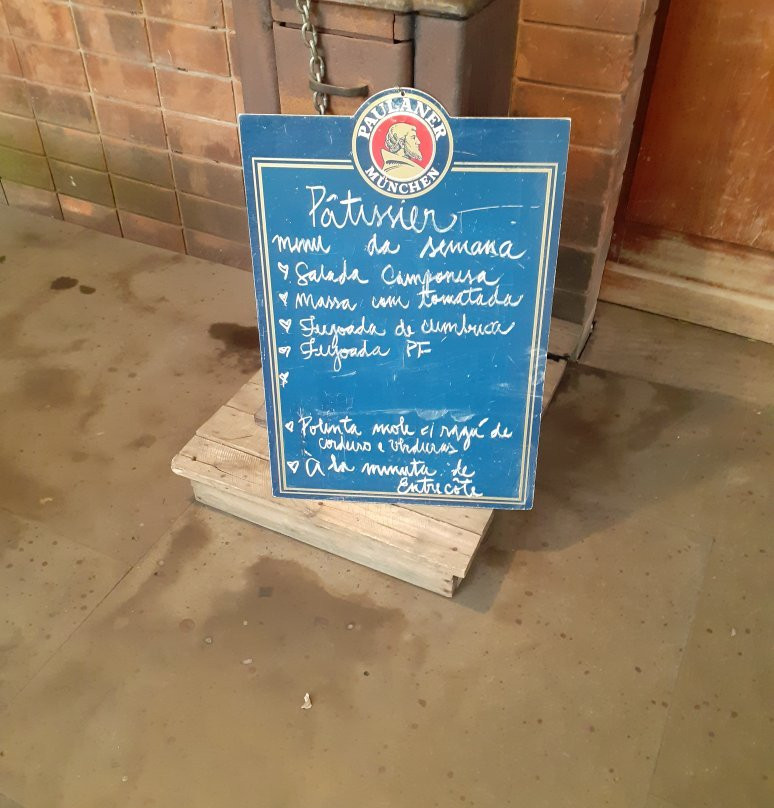 PAULANER
MÜNCHEN
Pâtissier
menu da semana
Salada Camponesa
Massa com tomatada
Feijoada de cumbuca
Feijoada PF
Polenta mole c/ ragú de
cordeiro e verduras
À la minuta de
Entrecôte